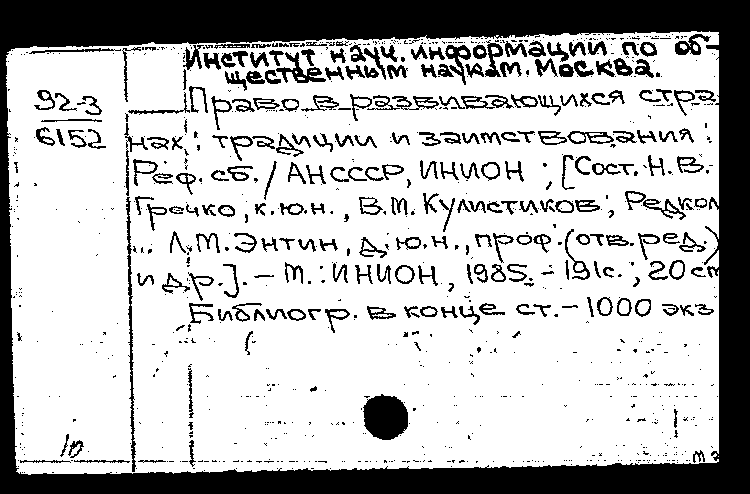 Институт науч. информации по об-
щественным наукам. Москва.
92-3
6152
Право в развивающихся стра
нах: традиции и заимствования:
Реф. сб. / АНСССР, ИНИОН ; [Сост. Н.В.
Гречко, к.ю.н., В.М. Кулистиков; Редкол
... Л.М. Энтин, д.ю.н., проф. (отв. ред.)
и др.]. - М.: ИНИОН, 1985. - 191с. ; 20 cm
Библиогр. в конце ст. - 1000 экз
10